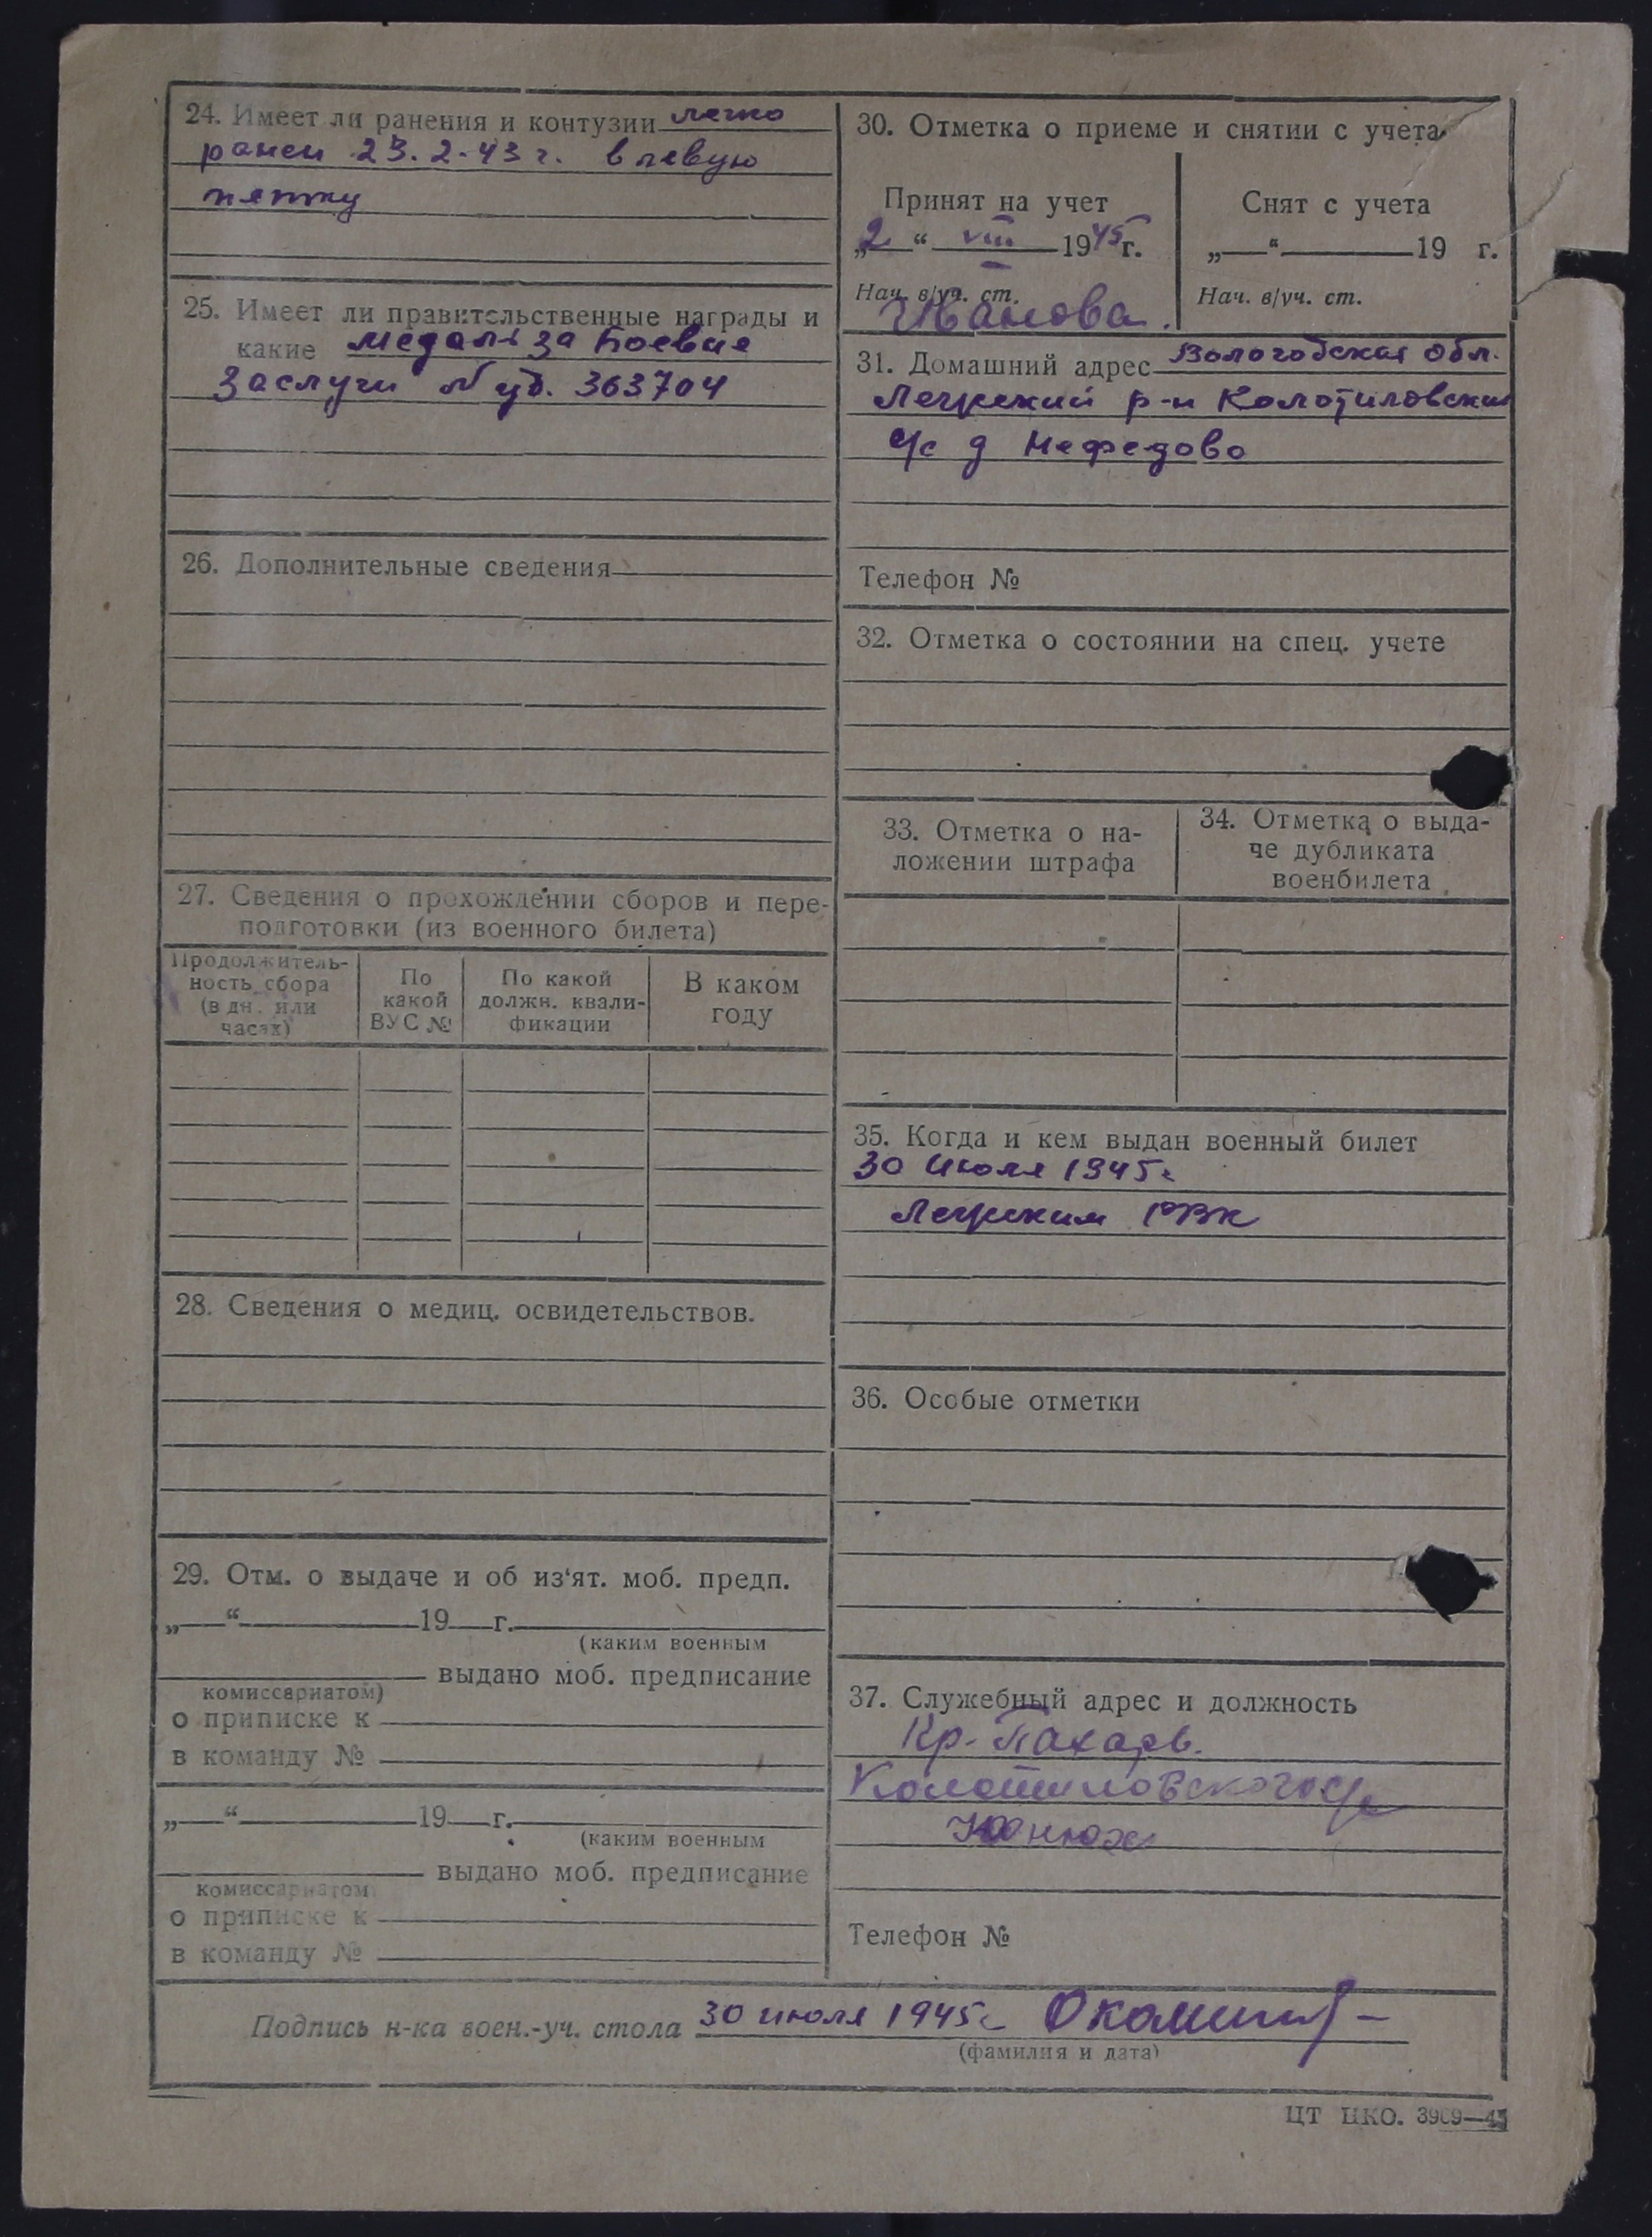 24. Имеет ли ранения и контузии легко
ранен 23.2.43 г. в левую
пятку
25. Имеет ли правительственные награды и
какие медаль за Боевые
Заслуги № уд. 363704
26. Дополнительные сведения
27. Сведения о прохождении сборов и пере-
подготовки (из военного билета)
Продолжитель-
ность сбора
(в дн. или
часах)
По
какой
ВУС №
По какой
должн. квали-
фикации
В каком
году
28. Сведения о медиц. освидетельствов.
29. Отм. о выдаче и об из'ят. моб. предп.
„ “ 19 г.
(каким военным
выдано моб. предписание
комиссариатом)
о приписке к
в команду №
„ “ 19 г.
(каким военным
выдано моб. предписание
комиссариатом
о приписке к
в команду №
30. Отметка о приеме и снятии с учета
Принят на учет
„2“ VIII 1945 г.
Нач. в/уч. ст.
Иванова.
Снят с учета
„ “ 19 г.
Нач. в/уч. ст.
31. Домашний адрес Вологодская обл.
р-н Колотиловский
с/с д Нефедово
Телефон №
32. Отметка о состоянии на спец. учете
33. Отметка о на-
ложении штрафа
34. Отметка о выда-
че дубликата
военбилета
35. Когда и кем выдан военный билет
30 июля 1945 г
РВК
36. Особые отметки
37. Служебный адрес и должность
Кр-Пахарь.
Колотиловского с/с
Телефон №
Подпись н-ка воен.-уч. стола 30 июля 1945 г
(фамилия и дата)
ЦТ НКО. 3909—45